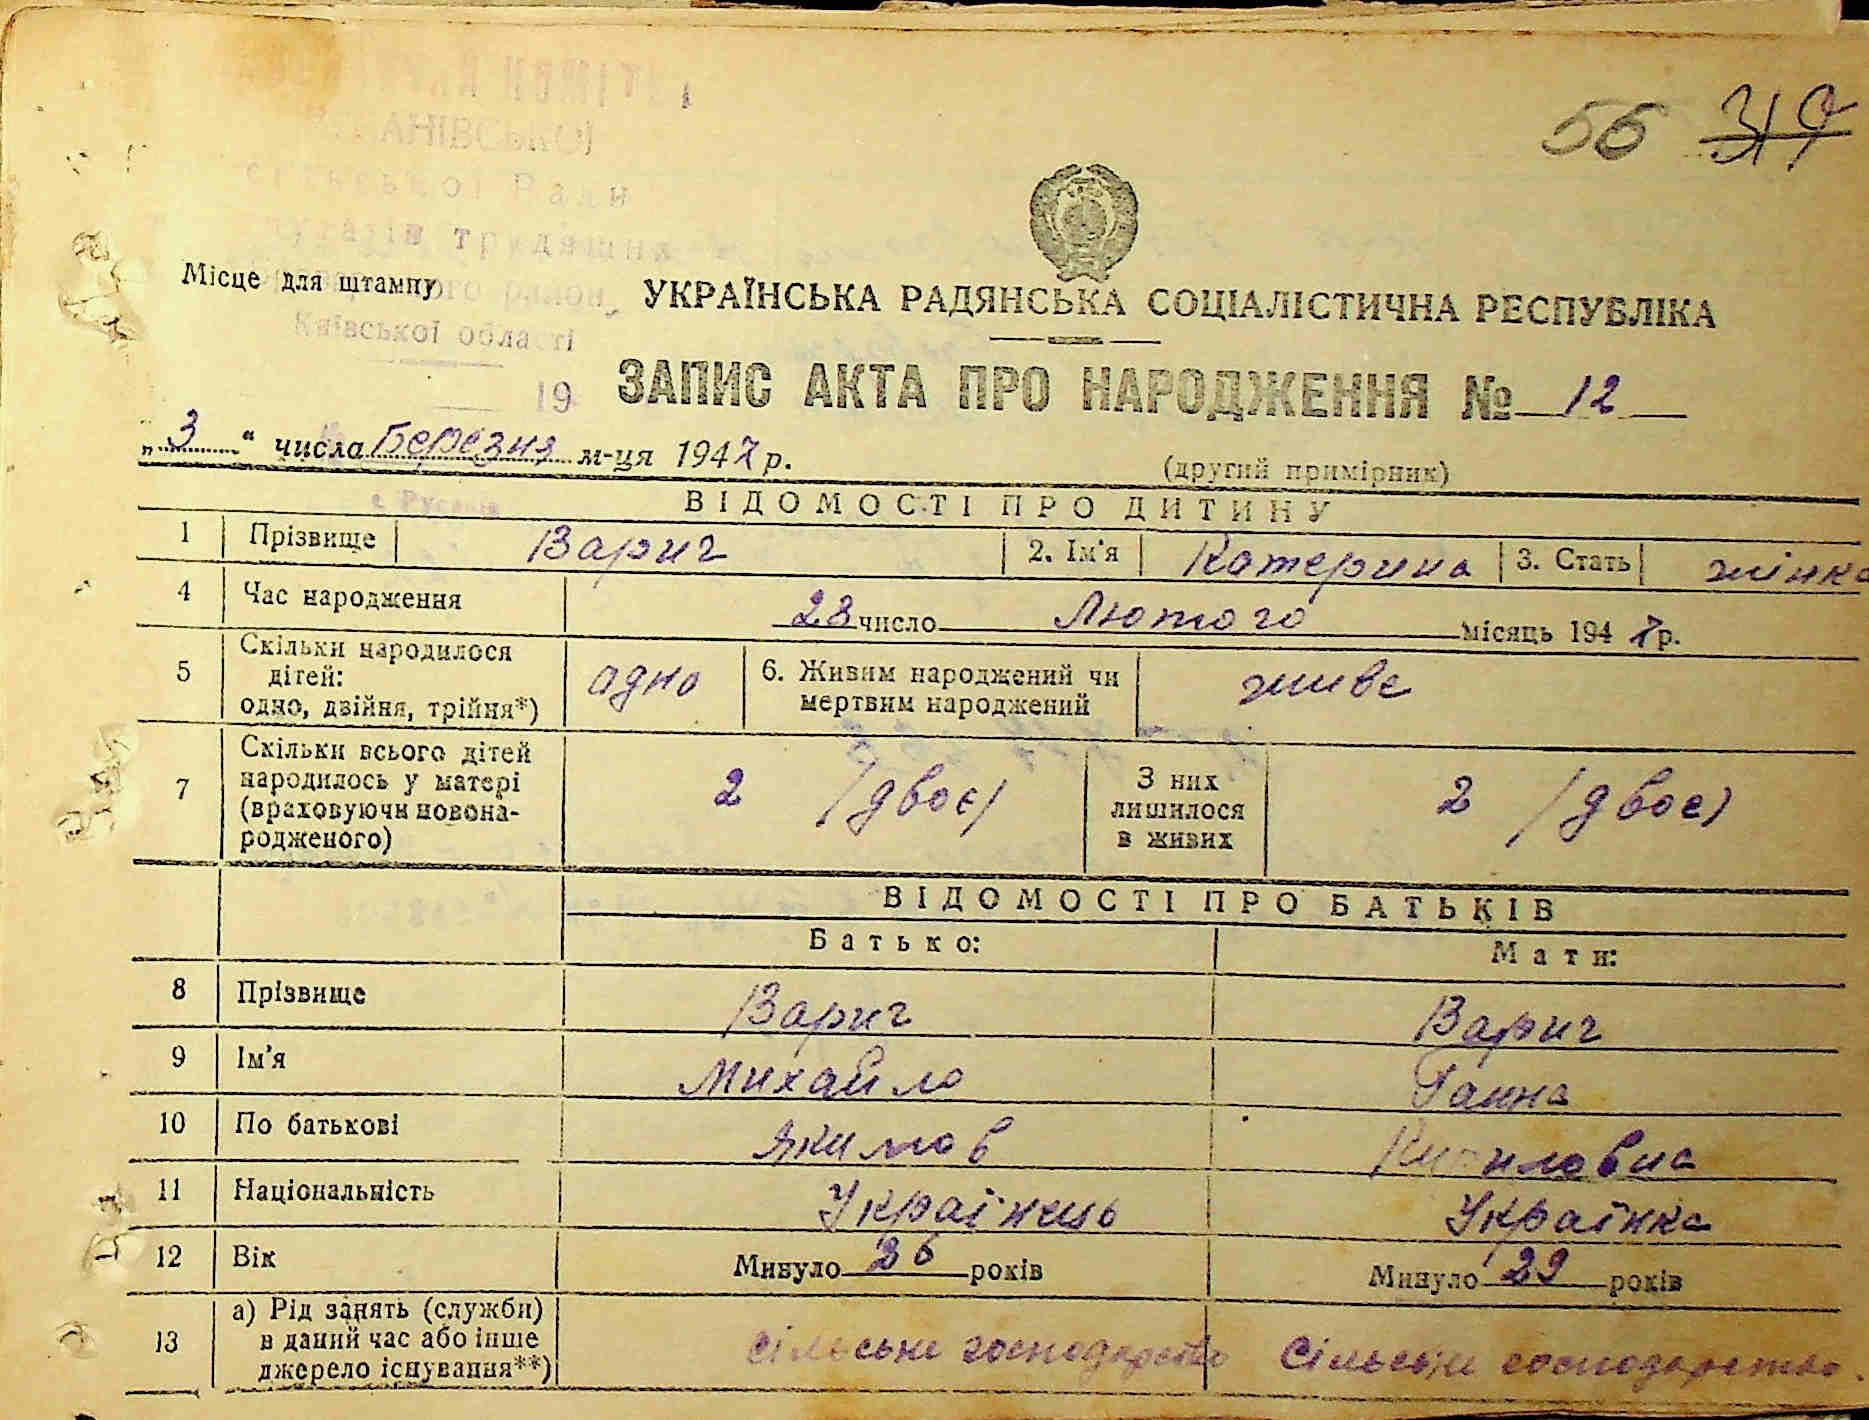 55 319
сільської Ради
Київської області
Місце для штампу
УКРАЇНСЬКА РАДЯНСЬКА СОЦІАЛІСТИЧНА РЕСПУБЛІКА
19
ЗАПИС АКТА ПРО НАРОДЖЕННЯ № 12
„ 3 “ числа Березня м-ця 1947 р.
(другий примірник)
ВІДОМОСТІ ПРО ДИТИНУ
1 Прізвище Варич 2. Ім'я Катерина 3. Стать жінка
4 Час народження 28 число Лютого місяць 1947 р.
5 Скільки народилося
дітей:
одно, двійня, трійня*) одно 6. Живим народжений чи
мертвим народжений живе
7 Скільки всього дітей
народилось у матері
(враховуючи новона-
родженого) 2 /двоє/ З них
лишилося
в живих 2 /двоє/
ВІДОМОСТІ ПРО БАТЬКІВ
Батько: Мати:
8 Прізвище Варич Варич
9 Ім'я Михайло Ганна
10 По батькові Якимов
11 Національність Українець Українка
12 Вік Минуло 36 років Минуло 29 років
13 а) Рід занять (служби)
в даний час або інше
джерело існування**) сільське господарство Сільське господарство.